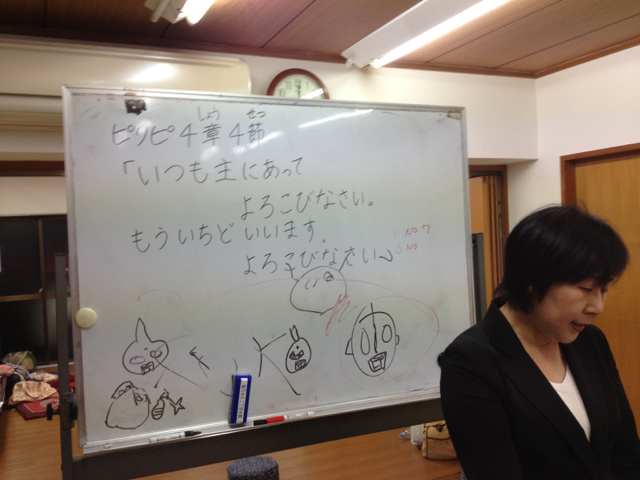 しょう せつ
ピリピ4章4節
「いつも主にあって
よろこびなさい。
もういちどいいます。
よろこびなさい」
NO 7
NO